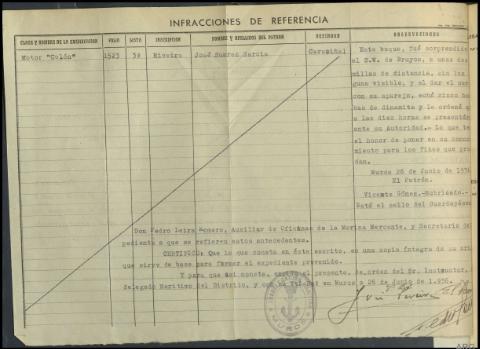 INFRACCIONES DE REFERENCIA
CLASE Y NOMBRE DE LA EMBARCACION FOLIO LISTA INSCRIPCION NOMBRE Y APELLIDOS DEL PATRON VECINDAD OBSERVACIONES
Motor "Colón" 1523 3ª Riveira José Suarez Garcia Caramiñal Este buque, fué sorprendido
al S.W. de Bruyos, a unas
millas de distancia, sin luz
guna visible, y al dar el
con su aparejo, echó cinco
bas de dinamita y le ordené
a las diez horas se presentán
ante su Autoridad.- Lo que
el honor de poner en su conoci
miento para los fines que pro
dan.
Muros 26 de Junio de 193
El Patrón.
Vicente Gómez.-Rubricado.-
Está el sello del Guardapesca
Don Pedro Leira Romero, Auxiliar de Oficinas de la Marina Mercante, y Secretario del
pediente a que se refieren estos antecedentes.
CERTIFICO: Que lo que consta en éste escrito, es una copia íntegra de su ori
que sirve de base para formar el expediente prevenido.
Y para que así conste, expido el presente, de orden del Sr. Instructor,
delegado Marítimo del Distrito, y con su Vº.Bº. en Muros a 26 de Junio de 1.936.
MUROS